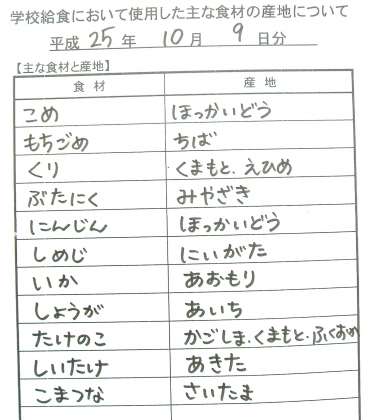 学校給食において使用した主な食材の産地について
平成 25 年 10 月 9 日分
【主な食材と産地】
食 材 産 地
こめ ほっかいどう
もちごめ ちば
くり くまもと．えひめ
ぶたにく みやざき
にんじん ほっかいどう
しめじ にいがた
いか あおもり
しょうが あいち
たけのこ かごしま．くまもと．ふくおか
しいたけ あきた
こまつな さいたま